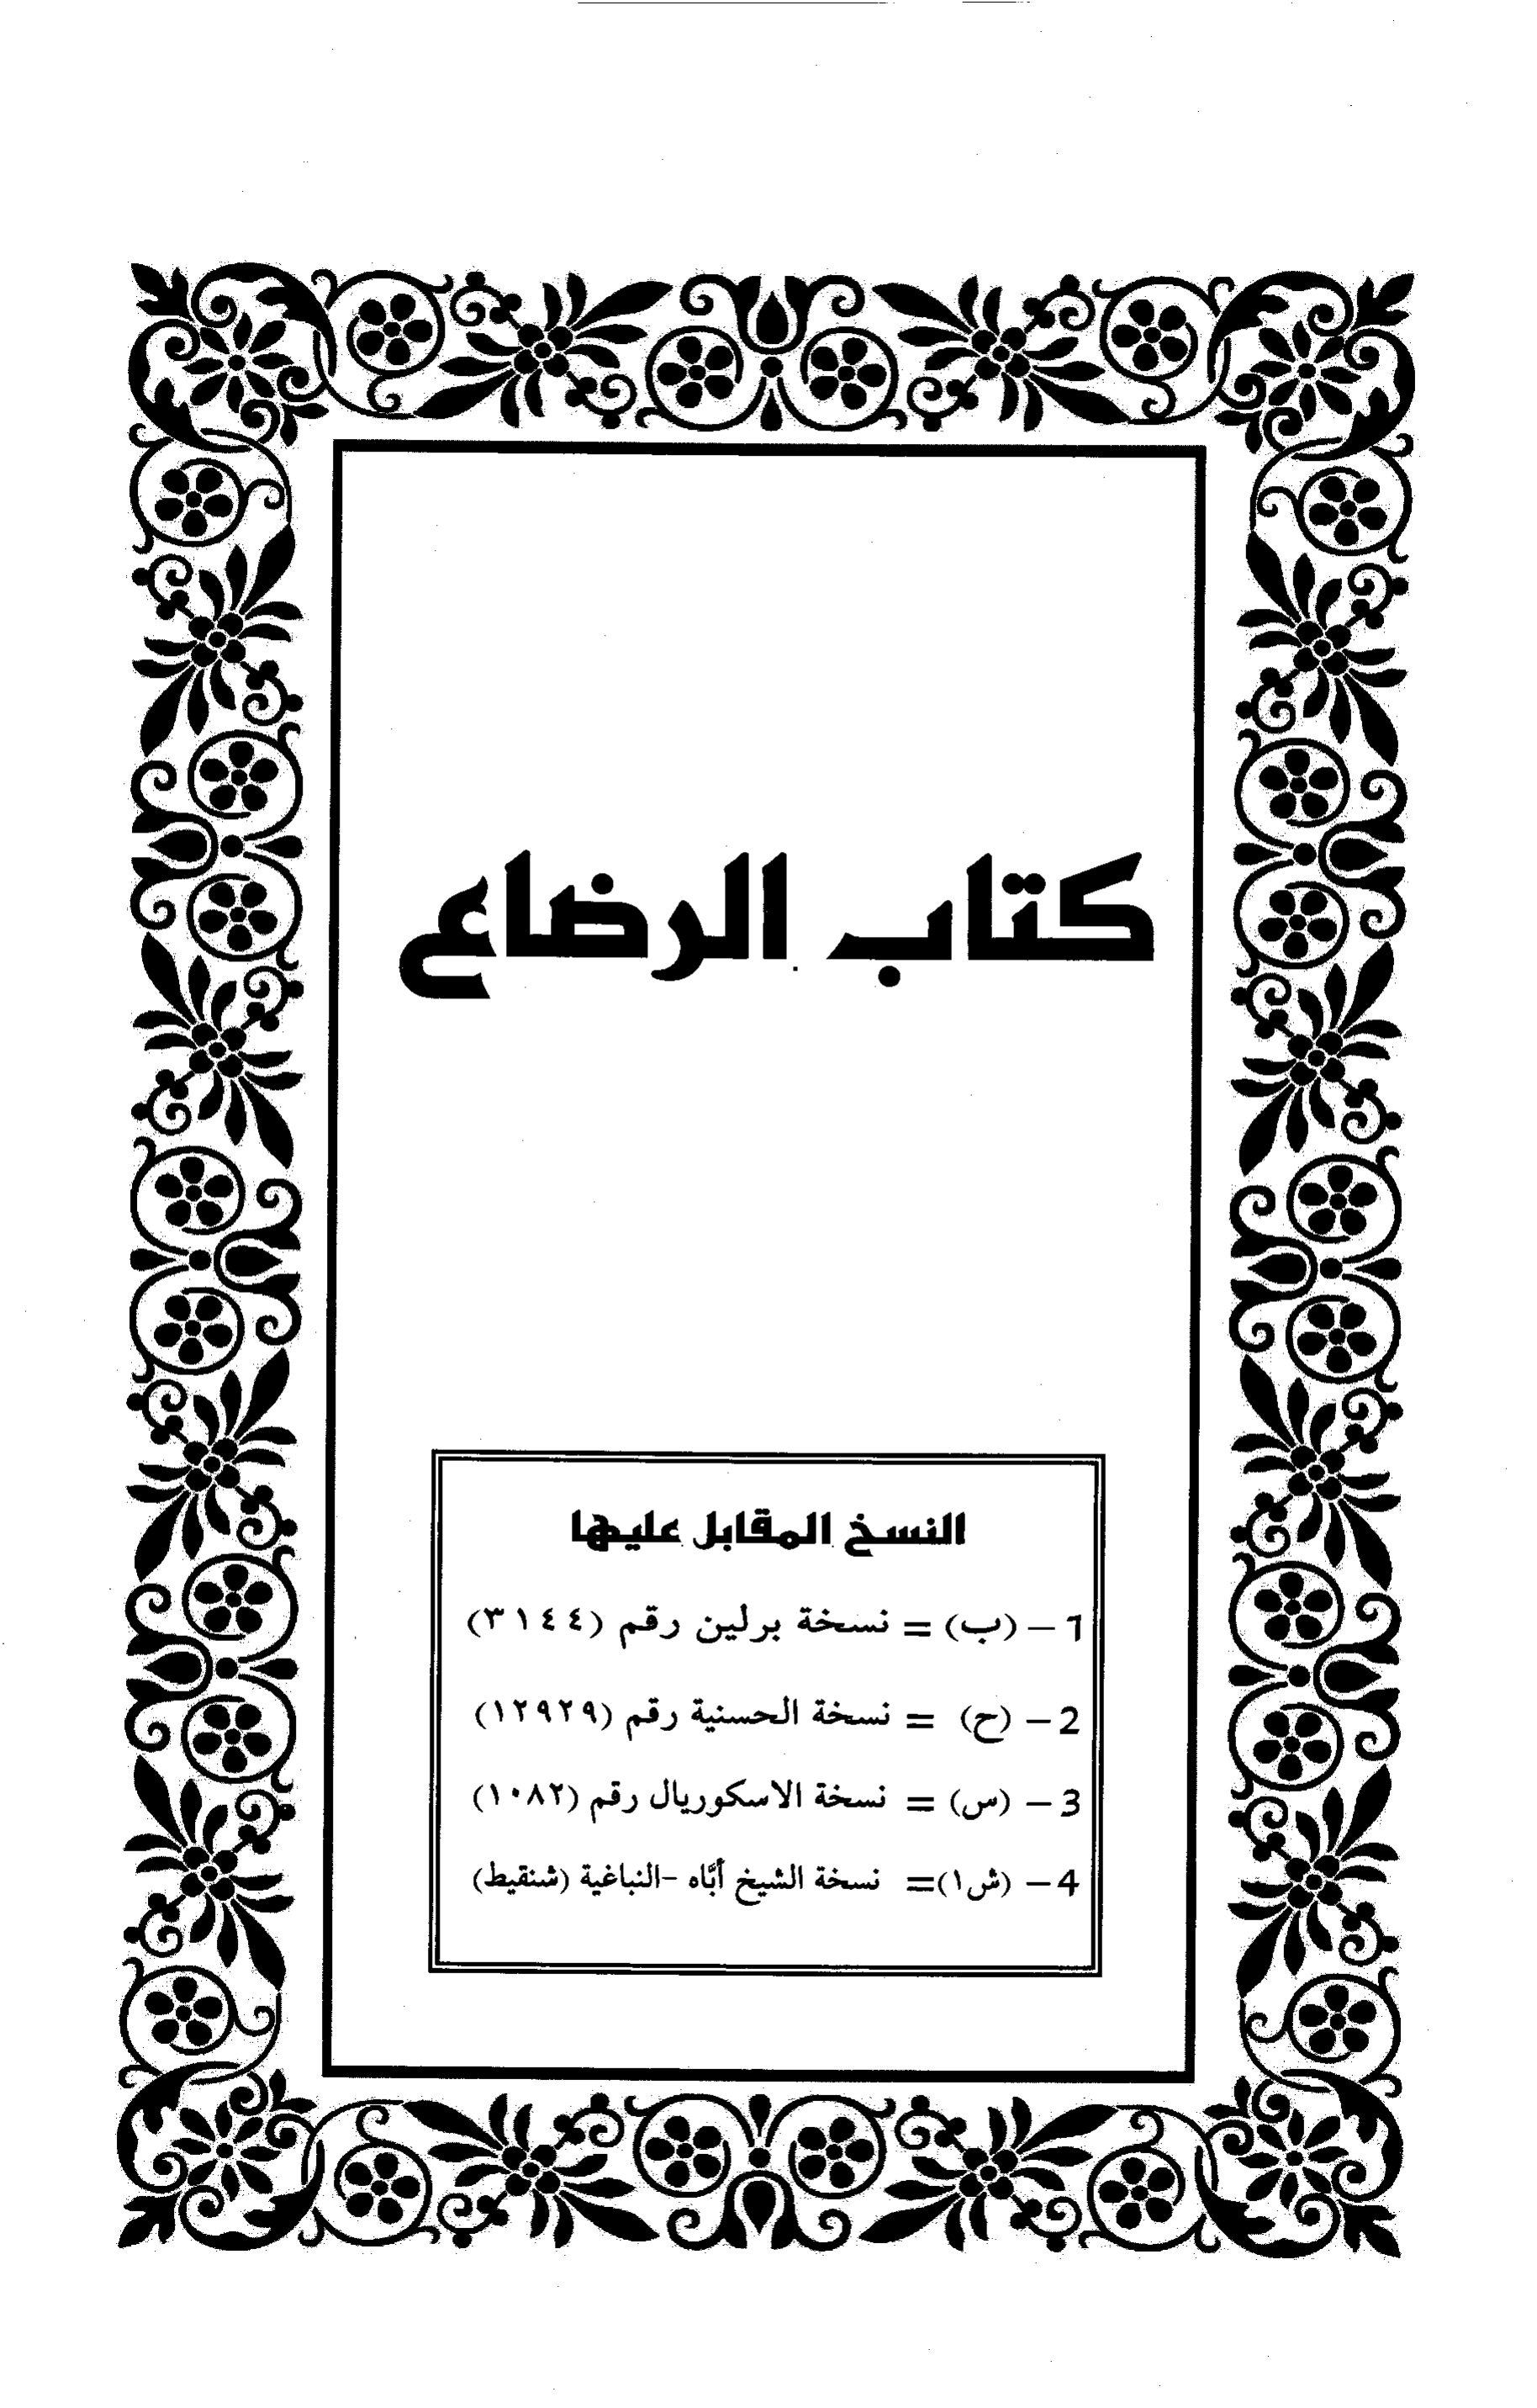 كتاب الرضاع
النسخ المقابل عليها
1 - (ب) = نسخة برلين رقم (٣١٤٤)
2 - (ح) = نسخة الحسنية رقم (١٢٩٢٩)
3 - (س) = نسخة الاسكوريال رقم (١٠٨٢)
4 - (ش١)= نسخة الشيخ أبَّاه -النباغية (شنقيط)